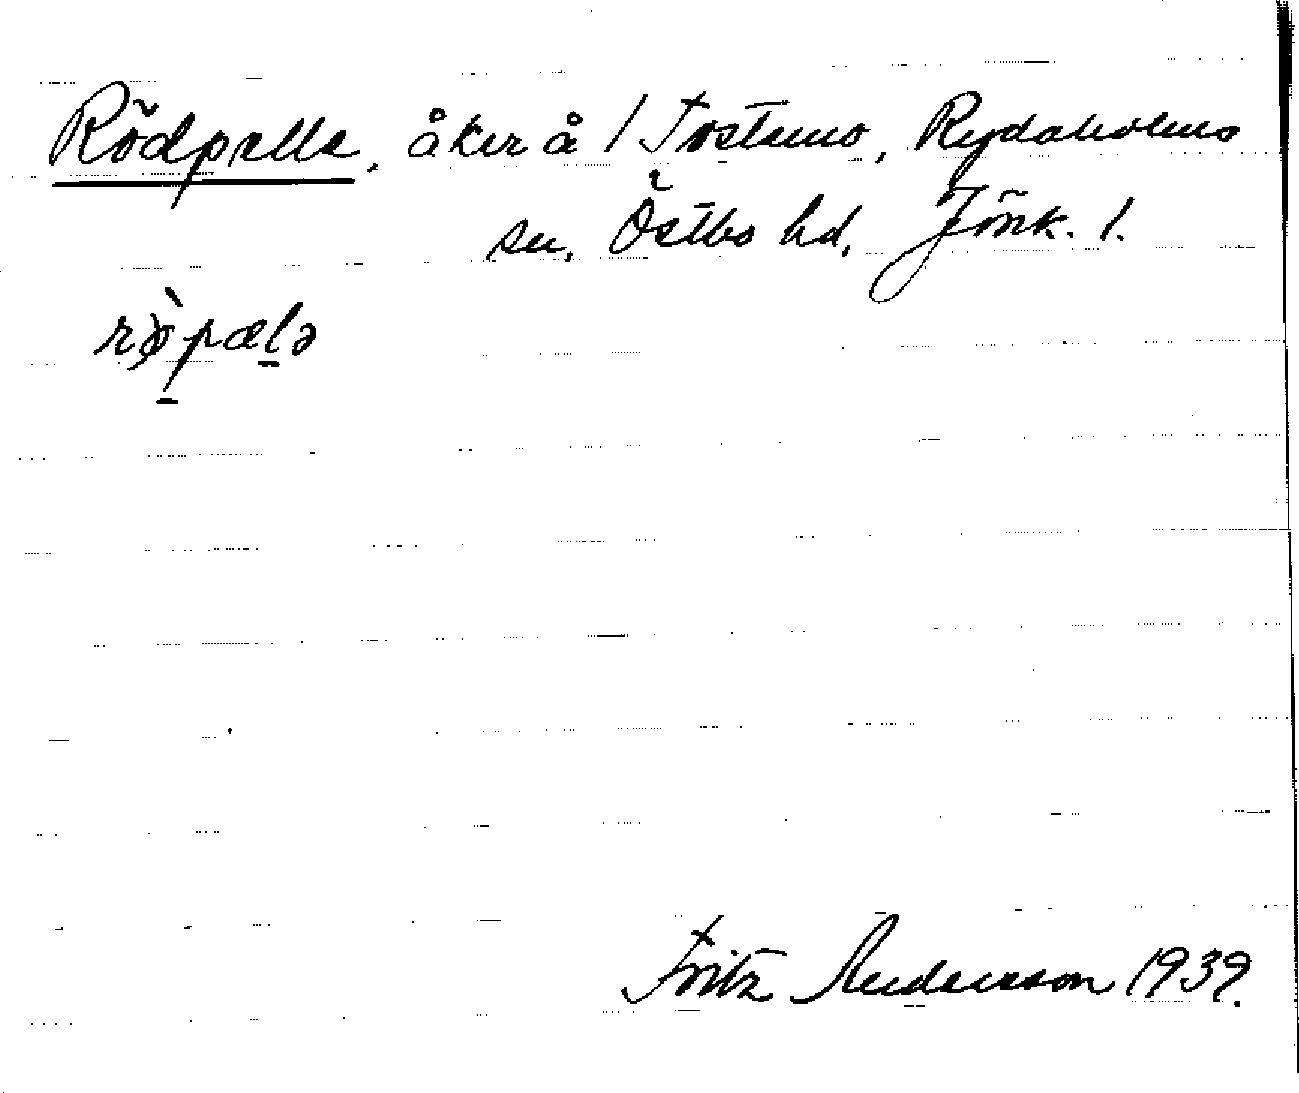 Rödpelle, åker å 1 Tostemo, Rydaholms
sn, Östbo hd, Jönk. l.
rø̀pælə
Fritz Andersson 1939.